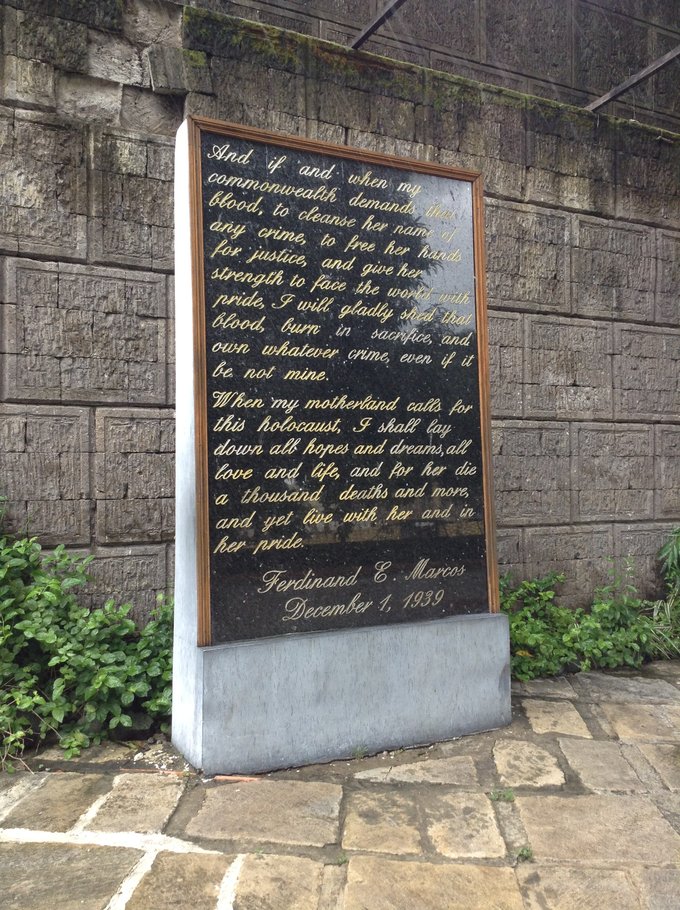 And if and when my
commonwealth demands this
blood, to cleanse her name of
any crime, to free her hands
for justice, and give her
strength to face the world with
pride, I will gladly shed that
blood, burn in sacrifice, and
own whatever crime, even if it
be not mine.
When my motherland calls for
this holocaust, I shall lay
down all hopes and dreams, all
love and life, and for her die
a thousand deaths and more,
and yet live with her and in
her pride.
Ferdinand E. Marcos
December 1, 1939